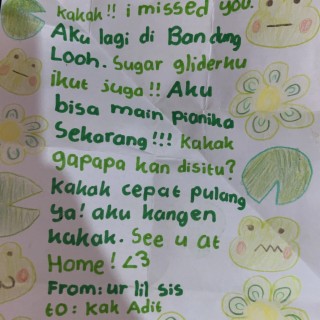 kakak!! i missed you.
Aku lagi di Bandung
Looh. Sugar gliderku
ikut juga!! Aku
bisa main pianika
Sekarang!!! kakak
gapapa kan disitu?
kakak cepat pulang
ya! aku kangen
kakak. See u at
Home! <3
From: ur lil sis
to: kak Adit